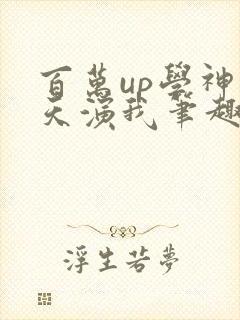 百萬up學神
天演我筆趣
浮生若夢